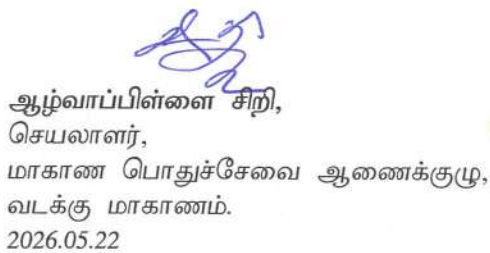 ஆழ்வாப்பிள்ளை சிறி,
செயலாளர்,
மாகாண பொதுச்சேவை ஆணைக்குழு,
வடக்கு மாகாணம்.
2026.05.22